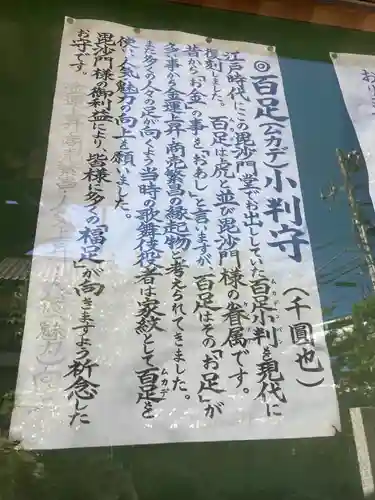 ◎百足(ムカデ)小判守
(千圓也)
江戸時代にこの毘沙門堂でお出ししていた百足小判を現代に
復刻しました。百足は虎と並び毘沙門様の眷属です。
昔から「お金」の事を「おあし」と言いますが、百足はその「お足」が
多い事から金運上昇・商売繁昌の縁起物と考えられてきました。
また多くの人々の足が向くよう当時の歌舞伎役者は家紋として百足を
使い、人気、魅力の向上を願いました。
毘沙門様の御利益により、皆様に多くの「福足」が向きますよう祈念した
お守です。